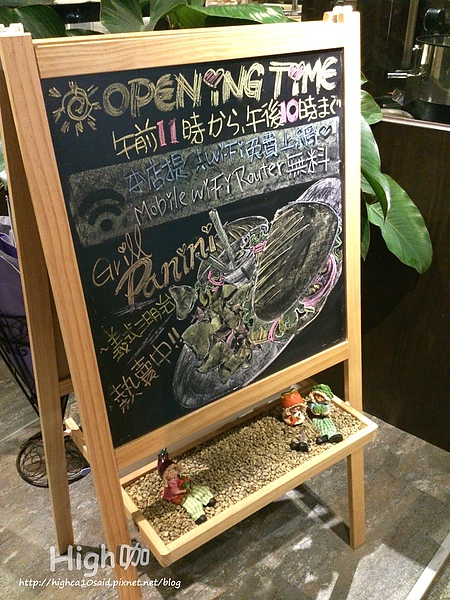 OPENING TIME
午前11時から、午後10時まで
本店提供WiFi免費上網
Mobile WiFi Router 無料
Grill
Panini
~義式三明治
熱賣中!!
High咖
http://highca10said.pixnet.net/blog